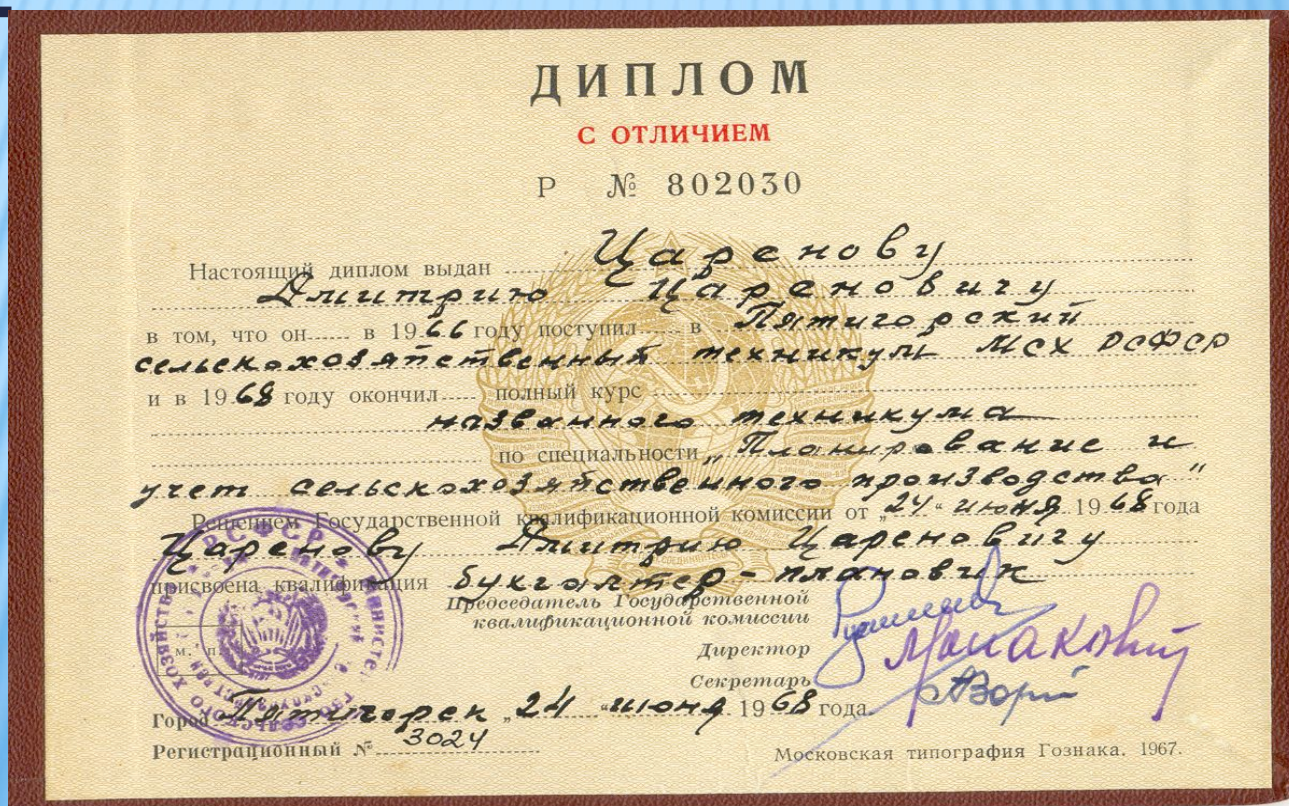 ДИПЛОМ
С ОТЛИЧИЕМ
Р № 802030
Настоящий диплом выдан Царенову
Дмитрию Цареновичу
в том, что он в 1966 году поступил в Пятигорский
сельскохозяйственный техникум МСХ РСФСР
и в 1968 году окончил полный курс
названного техникума
по специальности „Планирование и
учет сельскохозяйственного производства"
Решением Государственной квалификационной комиссии от „24" июня 1968 года
Царенову Дмитрию Цареновичу
присвоена квалификация бухгалтер-плановик
Председатель Государственной
квалификационной комиссии
Директор
Секретарь
м. п.
Город Пятигорск „24" июня 1968 года.
Регистрационный № 3024
Московская типография Гознака. 1967.
РСФСР